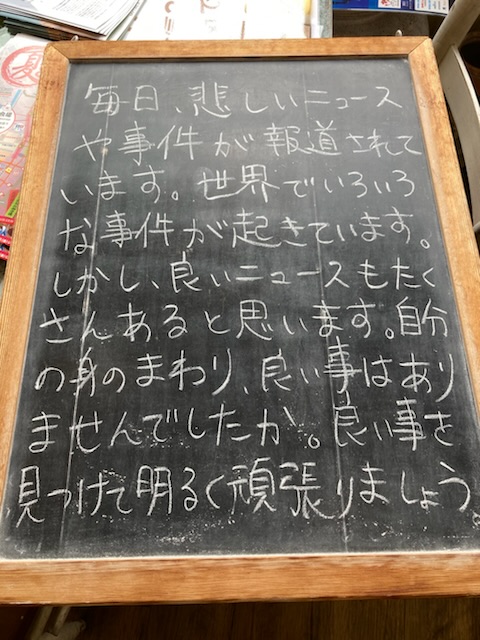 毎日、悲しいニュース
や事件が報道されて
います。世界でいろいろ
な事件が起きています。
しかし、良いニュースもたく
さんあると思います。自分
の身のまわり、良い事はあり
ませんでしたか。良い事を
見つけて明るく頑張りましょう。